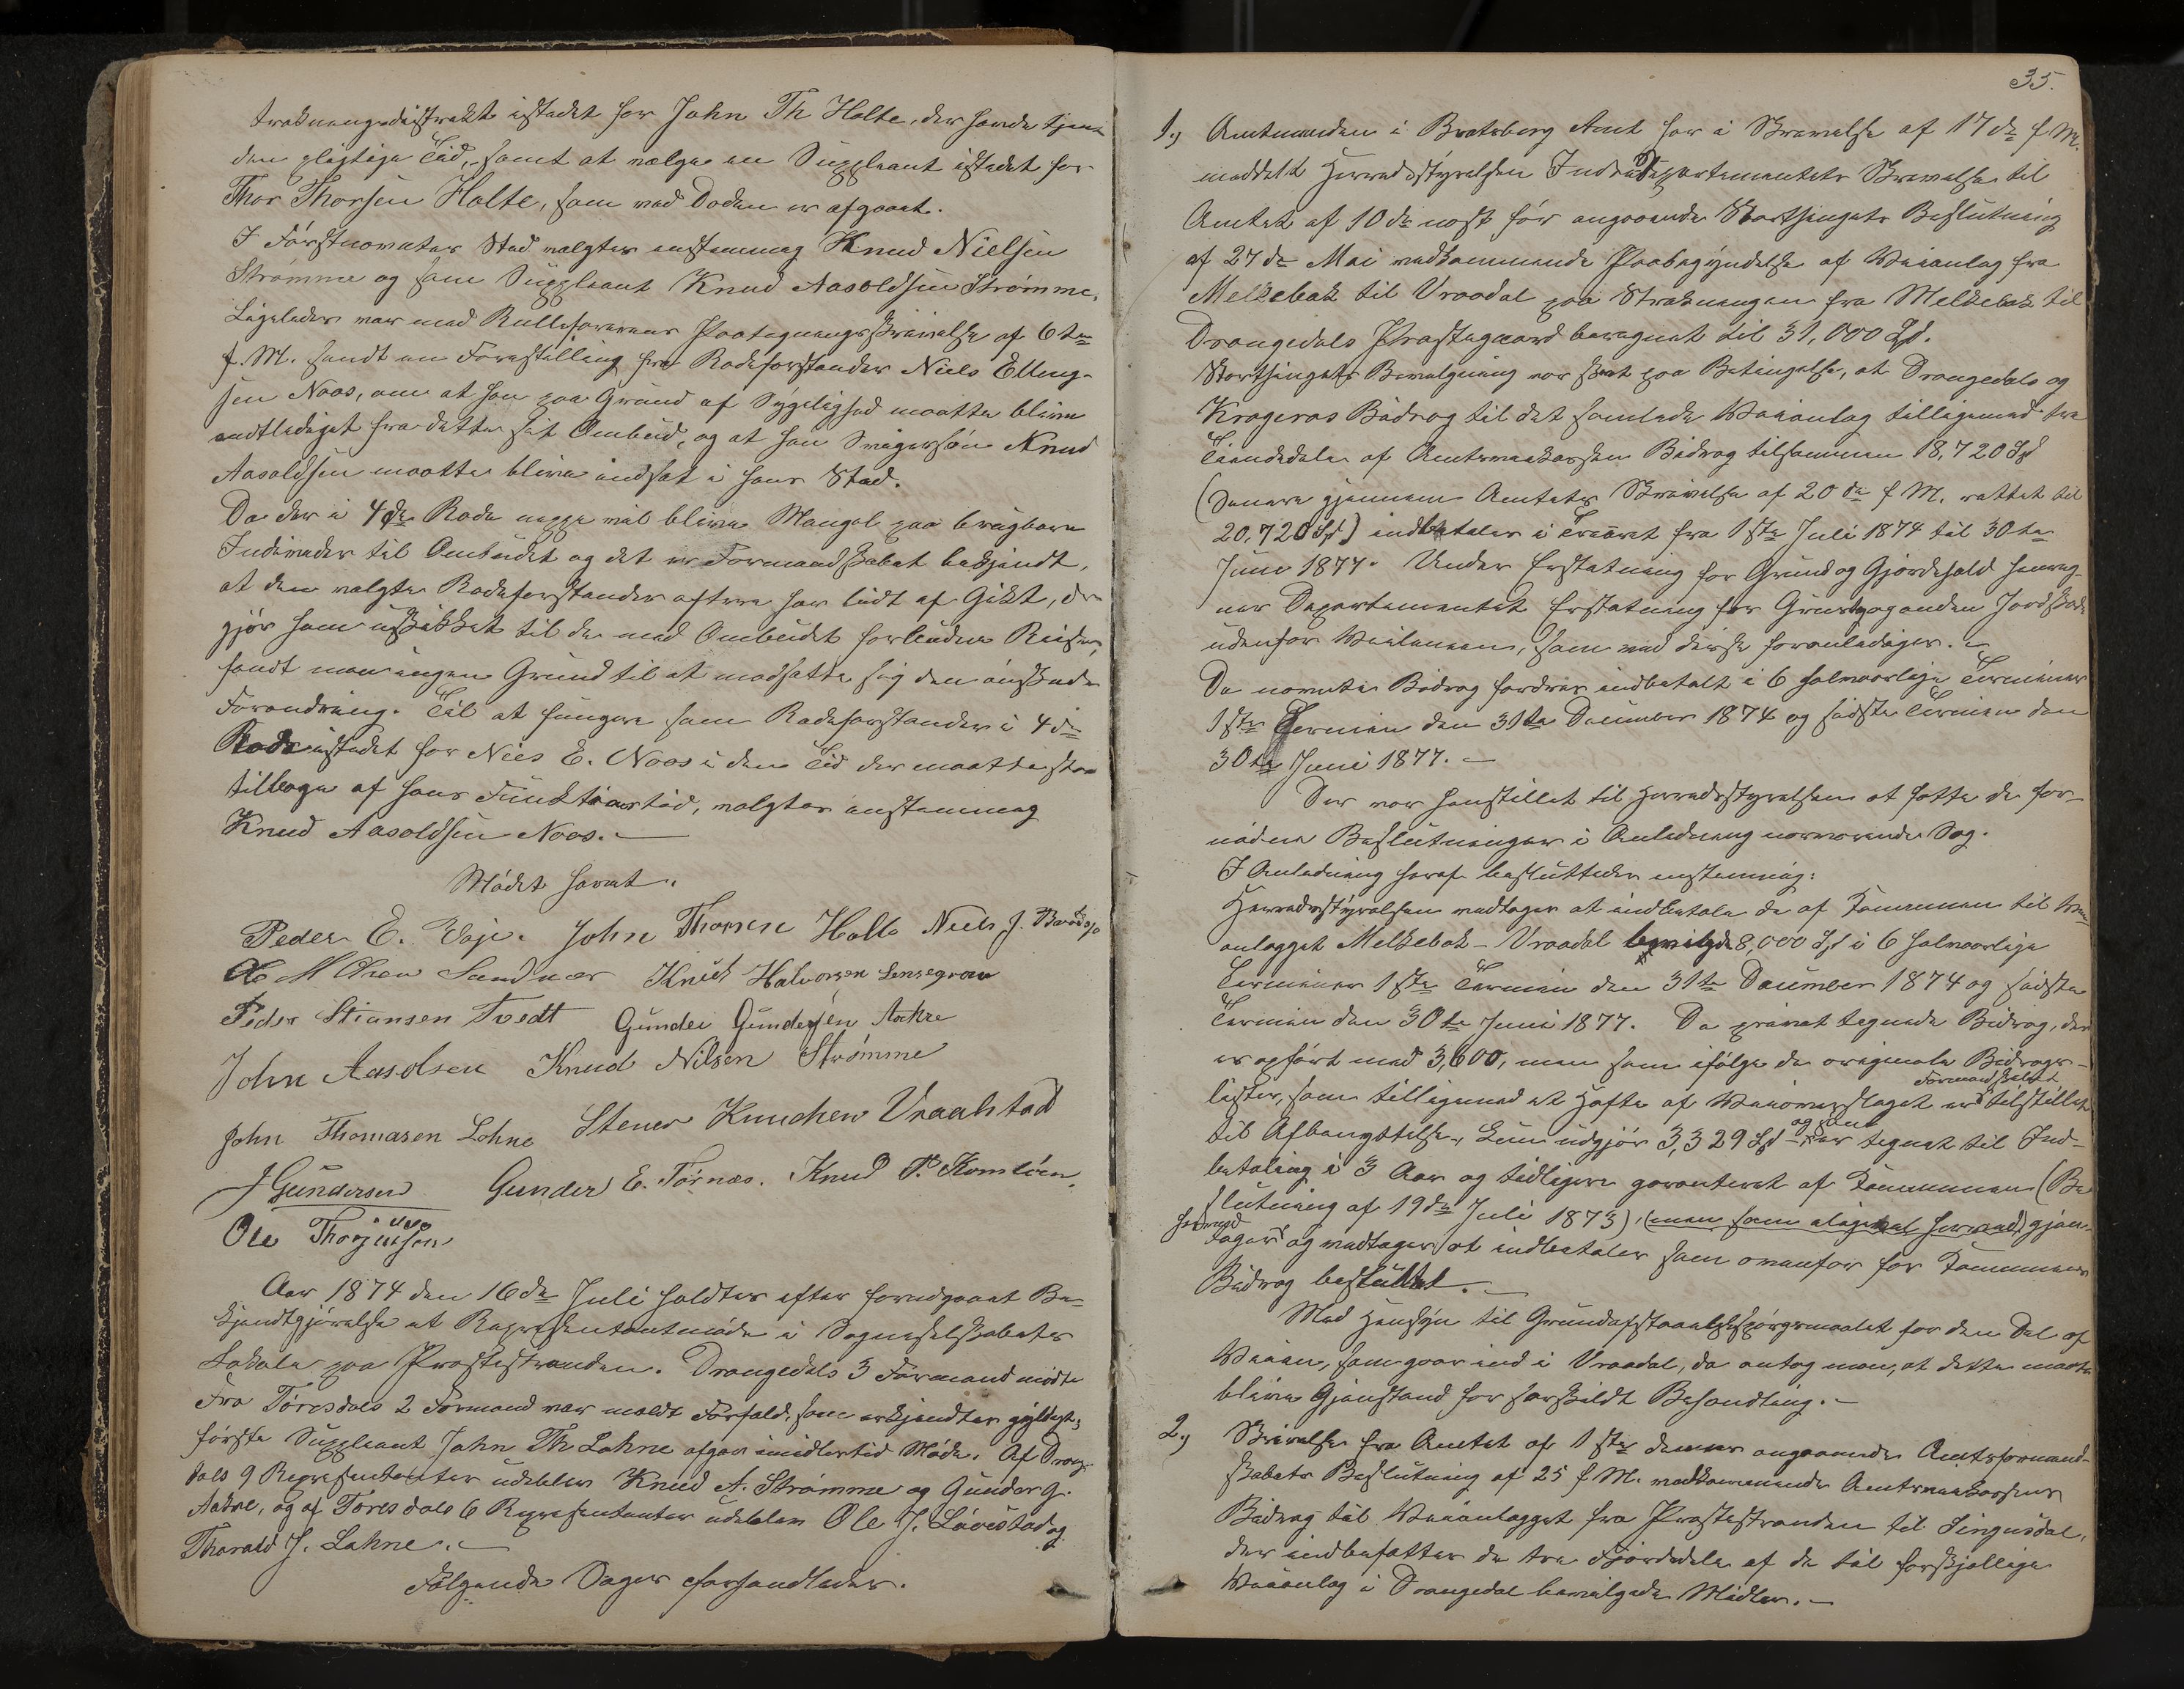 trækningsdistrikt istedet for John Th Holte, der havde tjent
den pligtige Tid, samt at vælge en Suppleant istedet for
Thor Thorsen Holte, som ved Døden er afgaaet.
I Førstnævntes Sted valgtes enstemmig Knud Nielsen
Strømme og som Suppleant Knud Aasoldsen Strømme.
Ligeledes var med Rulleførerens Paategningsskrivelse af 6te
f. M. sendt en Forestilling fra Rodeforstander Niels Elling-
sen Noos, om at han paa Grund af Sygelighed maatte blive
entlediget fra dette sit Ombud, og at hans Svigersøn Knud
Aasoldsen maatte blive indsat i hans Sted.
Da der i 4de Rode neppe vil blive Mangel paa brugbare
Individer til Ombudet og det er Formandskabet bekjendt,
at den valgte Rodeforstander oftere har lidt af Gikt, der
gjør ham uskikket til de med Ombudet forbundne Reiser,
fandt man ingen Grund til at modsætte sig den ønskede
Forandring. Til at fungere som Rodeforstander i 4de
Rode istedet for Niels E. Noos i den Tid der maatte staa
tilbage af hans Funktionstid, valgtes enstemmig
Knud Aasoldsen Noos. —
Mødet hævet.
Peder E. Voje. John Thorsen Holte Niels J.
Ole M Olsen Sandnæs Knut Halvorsen Sensegrav
Peder Stiansen Tvedt Gunder Gundersen Aakre
John Aasolsen Knud Nilsen Strømme
John Thomasen Lohne Stener Knudsen Vraalstad
J Gundersen Gunder E. Førnæs. Knud P. Homløen.
Ole Thorjussen
Aar 1874 den 16de Juli holdtes efter forudgaaet Be-
kjendtgjørelse et Repræsentantmøde i Sogneselskabets
Lokale paa Prestestranden. Drangedals 3 Formænd mødte
Fra Tørisdals 2 Formænd var meldt Forfald, som erkjendtes gyldigt;
første Suppleant John Th Lohne afgav imidlertid Møde. Af Drange-
dals 9 Repræsentanter udeblev Knud A. Strømme og Gunder G.
Aakre, og af Tørisdals 6 Repræsentanter udeblev Ole J. Løvestad og
Thorald J. Lohne. —
Følgende Sager forhandledes.
35.
1.) Amtmanden i Bratsberg Amt har i Skrivelse af 17de f. M.
meddelt Herredsstyrelsen Indredepartementets Skrivelse til
Amtet af 10de næst før angaaende Storthingets Beslutning
af 27de Mai vedkommende Paabegyndelse af Veianlæg fra
Melkebæk til Vraadal paa Strækningen fra Melkebæk til
Drangedals Præstegaard beregnet til 31,000 Spd.
Storthingets Bevilgning var sket paa Betingelse, at Drangedals og
Kragerøs Bidrag til det samlede Veianlæg tilligemed tre
Tiendedele af Amtsveikassens Bidrag tilsammen 18,720 Spd
(Senere gjennem Amtets Skrivelse af 20de f M. rettet til
20,720 Spd) indbetales i Treaaret fra 1ste Juli 1874 til 30te
Juni 1877. Under Erstatning for Grund og Gjærdehold henreg-
ner Departementet Erstatning for Grustag og anden Jordskade
udenfor Veilinien, som ved disse foranlediges. —
De nævnte Bidrag fordres indbetalt i 6 halvaarlige Terminer
1ste Termin den 31te December 1874 og sidste Termin den
30te Juni 1877. —
Der var henstillet til Herredsstyrelsen at fatte de for-
nødne Beslutninger i Anledning nærværende Sag.
I Anledning heraf besluttedes enstemmig:
Herredsstyrelsen vedtager at indbetale de af Kommunen til Vei-
anlægget Melkebæk – Vraadal bevilgede 8,000 Spd i 6 halvaarlige
Terminer 1ste Termin den 31te December 1874 og sidste
Termin den 30te Juni 1877. De privat tegnede Bidrag, der
er opført med 3,600, men som ifølge de originale Bidrags-
lister, som tilligemed et Hefte af Veioverslaget er Formandskabet tilstillet
til Afbenyttelse, kun udgjør 3,329 Spd og som er tegnet til Ind-
betaling i 3 Aar og tidligere garanteret af Kommunen (Be-
slutning af 19de Juli 1873), (men som alligevel herved) gjen-
herved tages og vedtages at indbetales som ovenfor for Kommunens
Bidrag besluttet. —
Med Hensyn til Grundafstaaelsesspørgsmaalet for den Del af
Veien, som gaar ind i Vraadal, da antog man, at dette maatte
blive Gjenstand for særskildt Behandling. —
2.) Skrivelse fra Amtet af 1ste dennes angaaende Amtsformand-
skabets Beslutning af 25 f. M. vedkommende Amtsveikassens
Bidrag til Veianlægget fra Præstestranden til Singusdal,
der indbefatter de tre Fjerdedele af de til forskjellige
Veianlæg i Drangedal bevilgede Midler. —